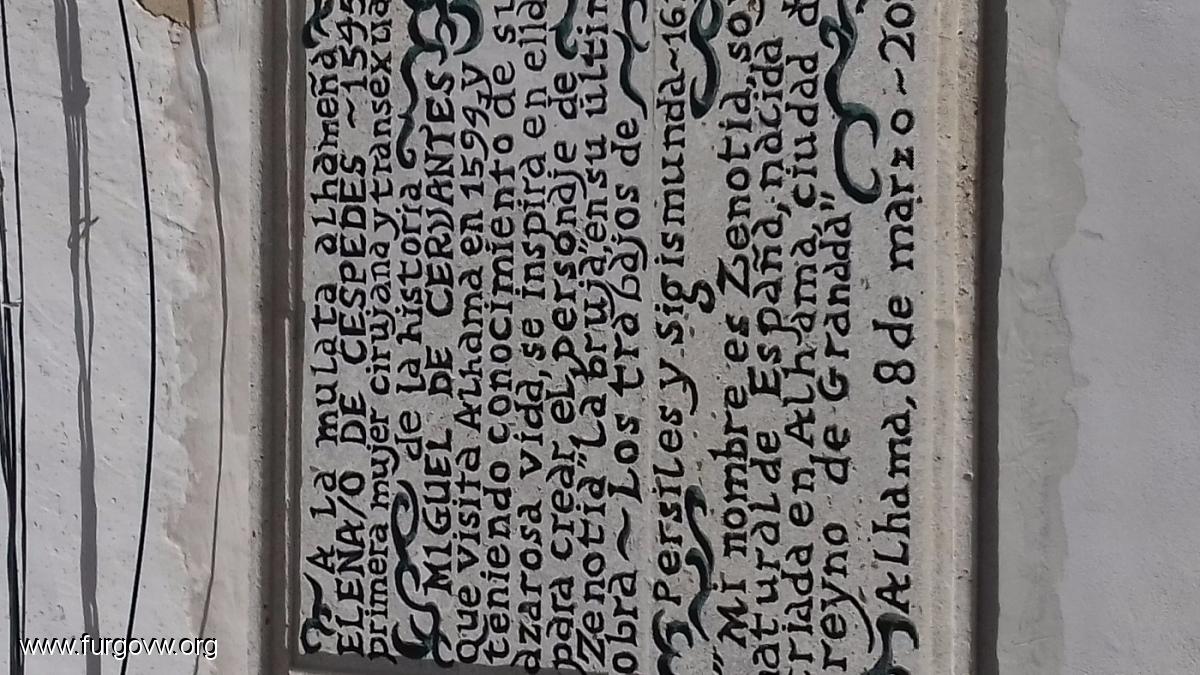 A la mulata alhameña
ELENA/O DE CESPEDES ~1545
primera mujer cirujana y transexual
de la historia
MIGUEL DE CERVANTES
que visita Alhama en 1594 y
teniendo conocimiento de su
azarosa vida, se inspira en ella
para crear el personaje de
Zenotia "La bruja", en su últim
obra ~ Los trabajos de
Persiles y Sigismunda~16
"Mi nombre es Zenotia, soy
natural de España, nacida y
criada en Alhama, ciudad d
reyno de Granada"
Alhama, 8 de marzo ~20
www.furgovw.org